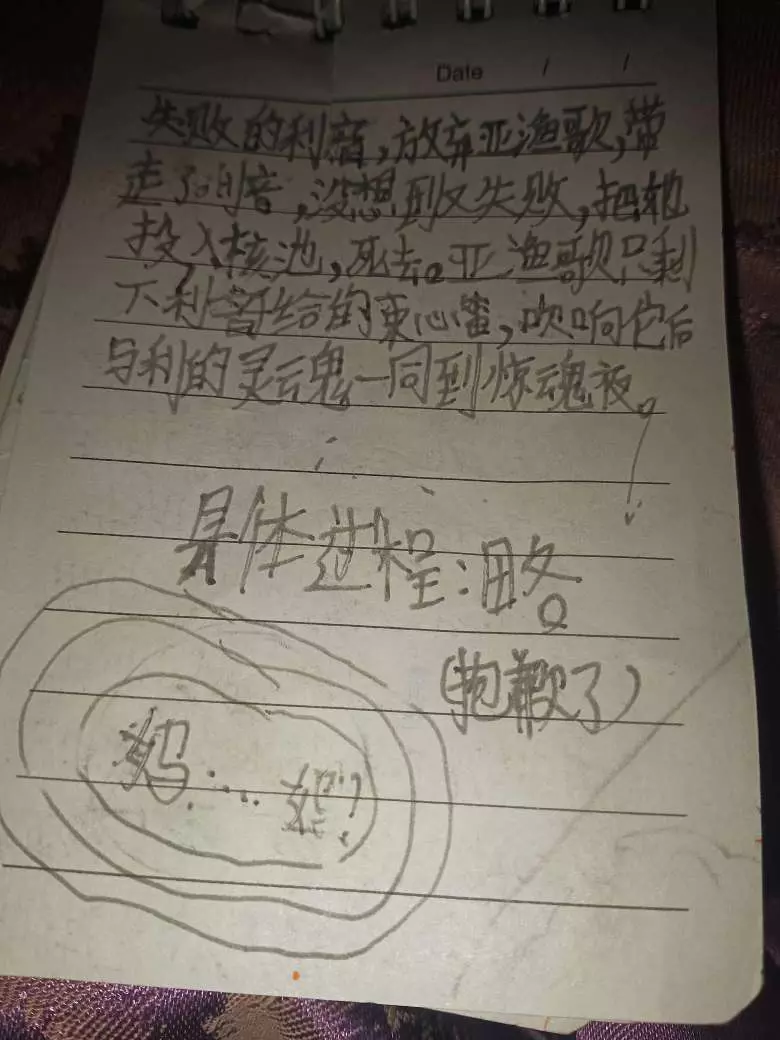 Date / /
失败的利音,放弃亚渔歌,带
走了明音,没想到又失败,把她
投入核池,死去。亚渔歌只剩
下利音给的束心笛,吹响它后
与利的灵魂一同到惊魂夜。
具体过程:略。
(抱歉了)
妈……妈?